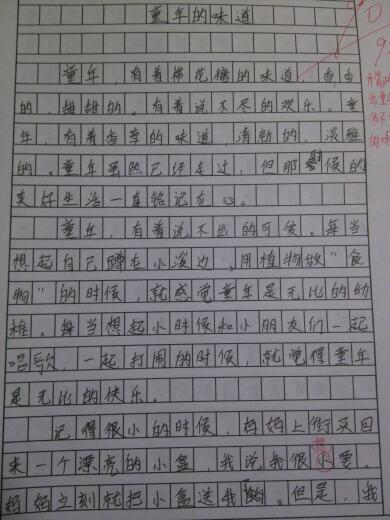 童年的味道
童年，有着棉花糖的味道，香香
的，甜甜的。有着说不尽的欢乐。童
年，有着香草的味道，清新的，淡雅
的。童年虽然已经走过，但那时候的
美好生活一直铭记在心。
童年，有着说不出的可倚。每当
想起自己蹲在小溪边，用植物做“食
物”的时候，就感觉童年是无比的幼
稚。每当想起小时候和小朋友们一起
唱歌，一起打闹的时候，就觉得童年
是无比的快乐。
记得很小的时候，妈妈上街买回
来一个漂亮的小盒，我说我很想要。
妈妈立刻就把小盒送我。但是，我